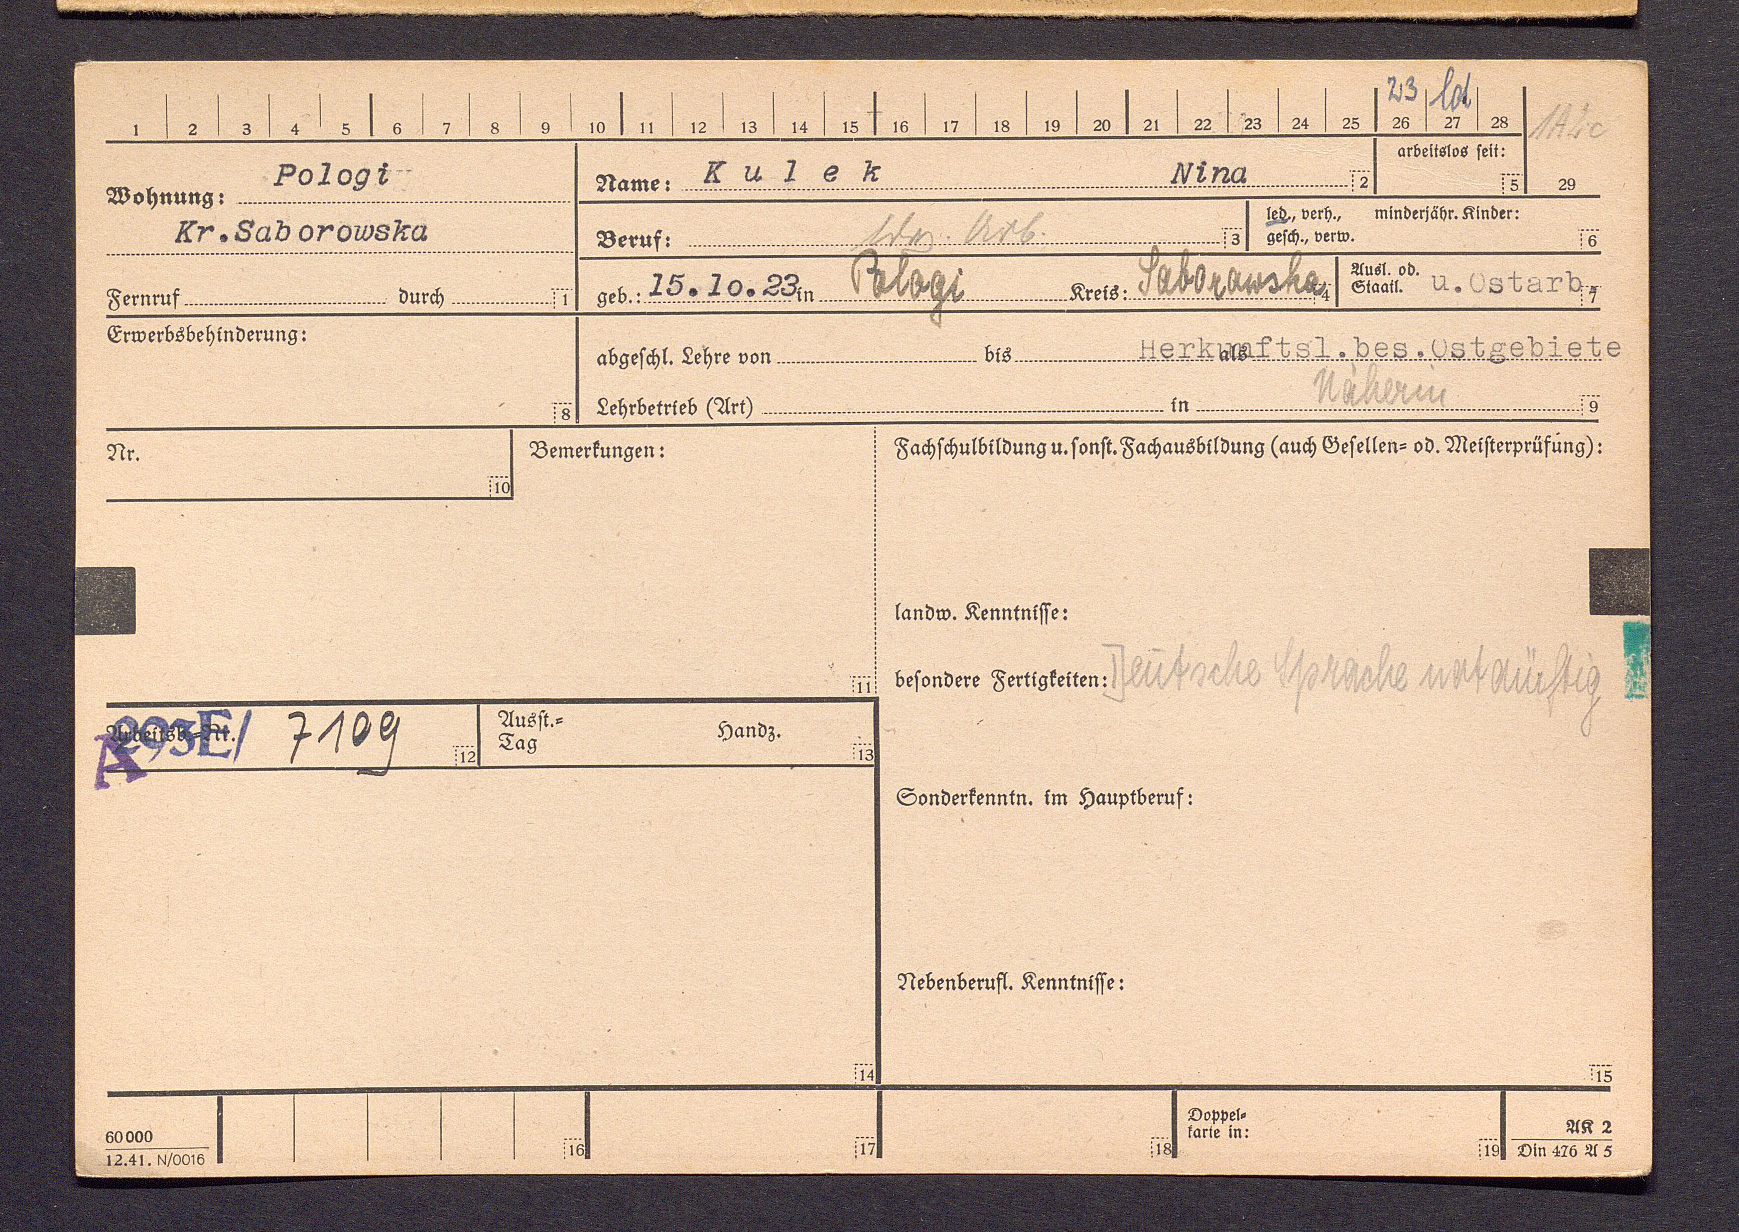 23 led
1 2 3 4 5 6 7 8 9 10 11 12 13 14 15 16 17 18 19 20 21 22 23 24 25 26 27 28
arbeitslos seit:
5
29
Wohnung: Pologi
Kr.Saborowska
Fernruf durch 1
Name: Kulek Nina 2
Beruf: Arb. 3
led., verh., minderjähr. Kinder:
gesch., verw. 6
geb.: 15.10.23 in Pologi Kreis: Saborowska 4
Ausl. od.
Staatl. u.Ostarb. 7
Erwerbsbehinderung:
8
abgeschl. Lehre von bis als Herkunftsl.bes.Ostgebiete
Näherin
Lehrbetrieb (Art) in 9
Nr.
10
Bemerkungen:
11
Fachschulbildung u. sonst. Fachausbildung (auch Gesellen= od. Meisterprüfung):
landw. Kenntnisse:
besondere Fertigkeiten: Deutsche Sprache notdürftig
Arbeitsb.=Nr. A 293E/ 7109 12
Ausst.=
Tag Handz. 13
Sonderkenntn. im Hauptberuf:
Nebenberufl. Kenntnisse:
14
15
60000
12.41. N/0016
16
17
18
Doppel=
karte in:
19
AK 2
Din 476 A 5